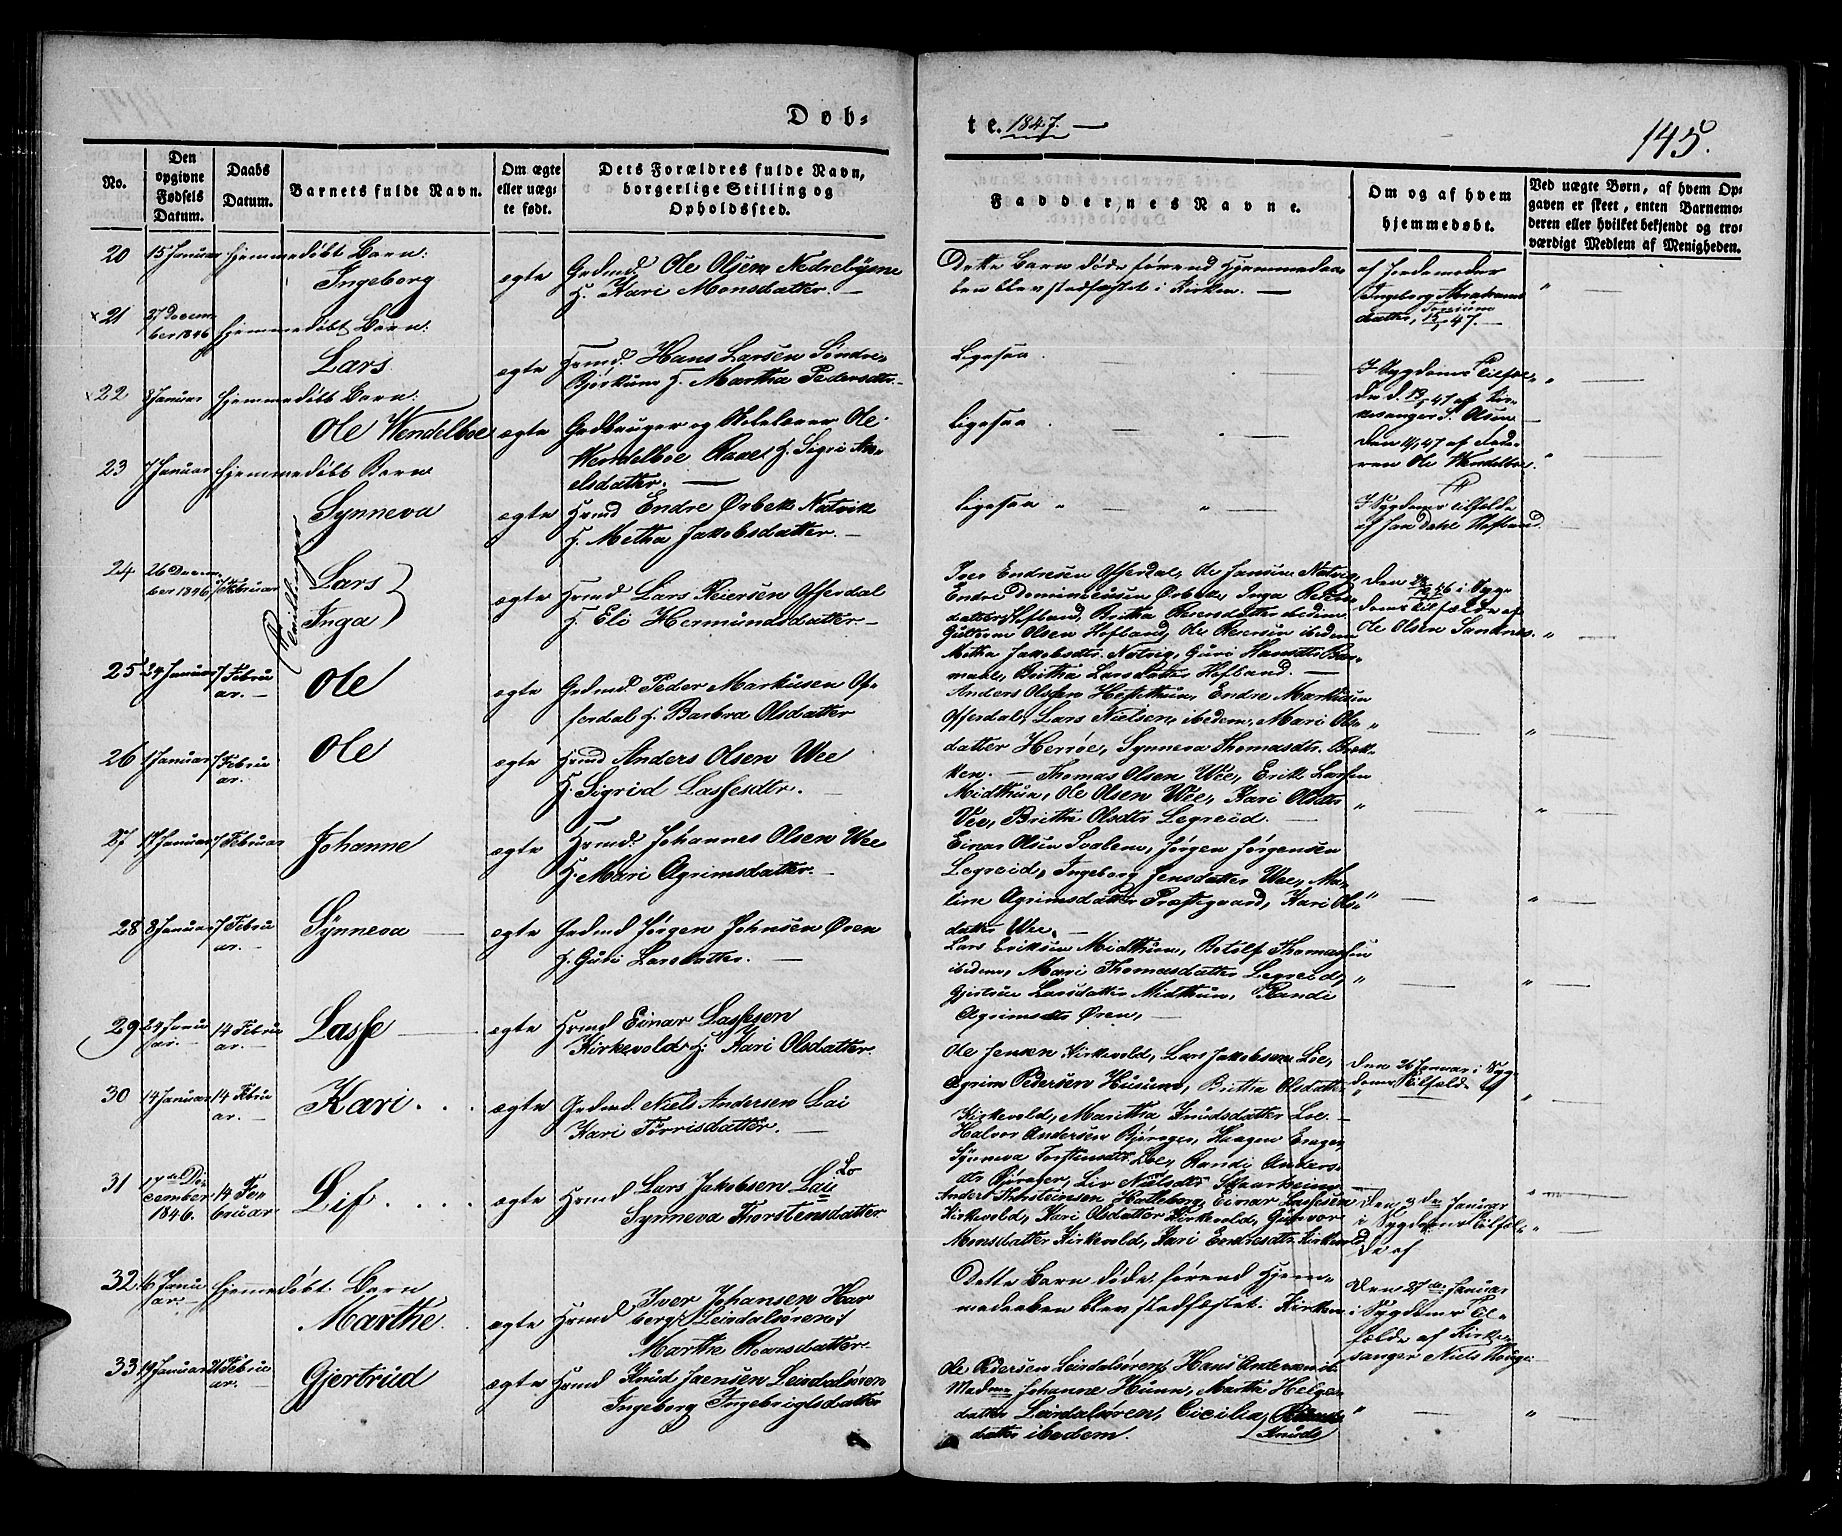 Døb-
te. 1847. —
145.
No.
Den opgivne Fødsels Datum.
Daabs Datum.
Barnets fulde Navn.
Om ægte eller uægte født.
Dets Forældres fulde Navn, borgerlige Stilling og Opholdssted.
Faddernes Navne.
Om og af hvem hjemmedøbt.
Ved uægte Børn, af hvem Opgaven er skeet, enten Barnemoderen eller hvilket bekjendt og troværdigt Medlem af Menigheden.
20 15 Januar hjemmedøbt Barn:
Ingeborg ægte Grdmd Ole Olsen
H. Kari Monsdatter. —
Dette Barn døde førend Hjemmedaa-
ben blev stadfæstet i Kirken. —
af Jordemoder
Ingeborg
datter, 47.
21 27 Decem-
ber 1846 hjemmedøbt Barn:
Lars ægte Hrmd. Hans Larsen Søndre
Bjørkum H. Martha Pedersdtr.
ligesaa
I Sygdoms Tilfæl-
de d. 47 af Kir-
kesanger S. Olsen
22 8 Januar hjemmedøbt Barn:
Ole Wendelboe ægte Grdbruger og Skolelærer Ole
Wendelboe H. Sigri
elsdatter. —
ligesaa
Den 47 af Fade-
ren Ole Wendelboe
23 7 Januar hjemmedøbt Barn
Synneva ægte Hrmd Endre Ørbek Natvik
H. Metha Jakobsdatter. —
ligesaa
I Sygdoms tilfælde
af Jan Dahl Hofland.
24 26 Decem-
ber 1846 7 Februar Tvillinger Lars
Inga ægte Hrmd Lars Reiersen Offerdal
H. Eli Hermundsdatter —
Iver Endresen Offerdal, Ole Jansen Natvig,
Endre Dominicusen Ørbek, Inga Peders-
datter Hofland, Britha Reiersdatter ibedem
Gulken Olsen Hofland, Ole Reiersen ibedem
Metha Jakobsdtr. Natvig, Guri Hansdtr
Britha Larsdatter Hofland. —
Den 46 i Syg-
doms tilfælde af
Ole Olsen Sanknes.
25 24 Januar 7 Febru
ar. — Ole ægte Grdmd. Peder Markusen Of-
ferdal H. Barbra Olsdatter
Anders Olsen Hestethun, Endre Markusen
Offerdal, Lars Nielsen, ibedem, Mari Ols-
datter Herrøe, Synneva Thomasdtr. Bræk-
ken. —
26 1 Januar 7 Febru
ar. Ole ægte Hrmd Anders Olsen Wee
H. Sigrid Lassesdtr. —
Thomas Olsen Wee, Erik Larsen
Midthun, Ole Olsen Wee, Kari Olsdtr
Vee, Britha Olsdtr Legreid. —
27 17 Januar 7 Februar Johanne ægte Hrmd. Johannes Olsen Wee
H. Mari Agrimsdatter. —
Einar Olsen Svalem, Jørgen Jørgensen
Legreid, Ingeborg Jensdatter Wee, Ma-
line Agrimsdatter Præstegaard, Kari Ols-
datter Wee. —
28 8 Januar 7 Febru
ar. — Synneva ægte Grdmd Jørgen Johnsen Øren
H. Guri Larsdatter. —
Lars Eriksen Midthun, Botolf Thomassen
ibedem, Mari Thomasdatter Legreid,
Gjertrue Larsdatter Midthun, Randi
Agrimsdtr Øren, —
29 24 Janu
ar. 14 Febru
ar. — Lasse ægte Hrmd Einar Lassesen
Kirkevold H. Kari Olsdatter.
Ole Jensen Kirkevold, Lars Jakobsen Loe,
Agrim Pedersen Husum, Britha Olsdatter
Kirkevold, Maritha Knudsdatter Loe. —
Den 26 Januar i Syg-
doms Tilfæld
30 14 Januar 14 Febru
ar. — Kari. ægte Grdmd. Niels Andersen Lai
Kari Torrisdatter. —
Halvor Andersen Bjørage, Haagen
Synneva Torstensdtr Loe, Randi Anders-
dtr Bjørage, Liv Nielsdtr
31 17de De-
cember
1846. 14 Fe-
bruar Lif. ægte Hrmd Lars Jakobsen Lai Lo
Synneva Thorstensdatter
Anders Thorsteinsen Hatleberg, Einar Lassesen
Kirkevold, Kari Olsdatter Kirkevold, Gunvor
Monsdatter Kirkevold, Kari Endresdtr. Kirkevold
Den 3 den Januar
i Sygdoms Tilfæl-
de af
32. 6 Janu
ar. hjemmedøbt Barn
Marthe. ægte Hrmd Iver Johansen Har
berg Leirdalsøren
Marthe
Dette Barn døde, førend Hjem-
medaaben blev stadfæstet i Kirken
Den 27 de Januar
i Sygdoms Til-
fælde af Kirke-
sanger Niels
33 19 Januar 21 Febru
ar. Gjertrud ægte Hrmd Knud Jaensen Leirdalsøren
Ingeborg Ingebrigtsdatter
Ole Pedersen Leirdalsøren, Hans
Madme Johanne Hunn, Martha Helge-
datter Leirdalsøren, Cicilia,
Knuds
datter ibedem.